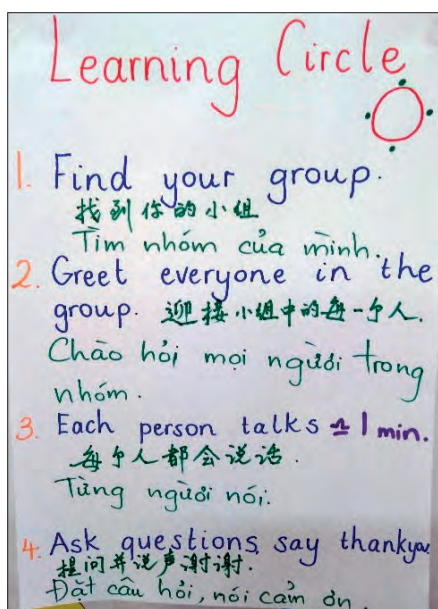 Learning Circle
1. Find your group.
找到你的小组
Tìm nhóm của mình.
2. Greet everyone in the
group. 迎接小组中的每一个人.
Chào hỏi mọi người trong
nhóm.
3. Each person talks ≏ 1 min.
每个人都会说话.
Từng người nói.
4. Ask questions, say thankyou
提问并说声谢谢.
Đặt câu hỏi, nói cảm ơn.